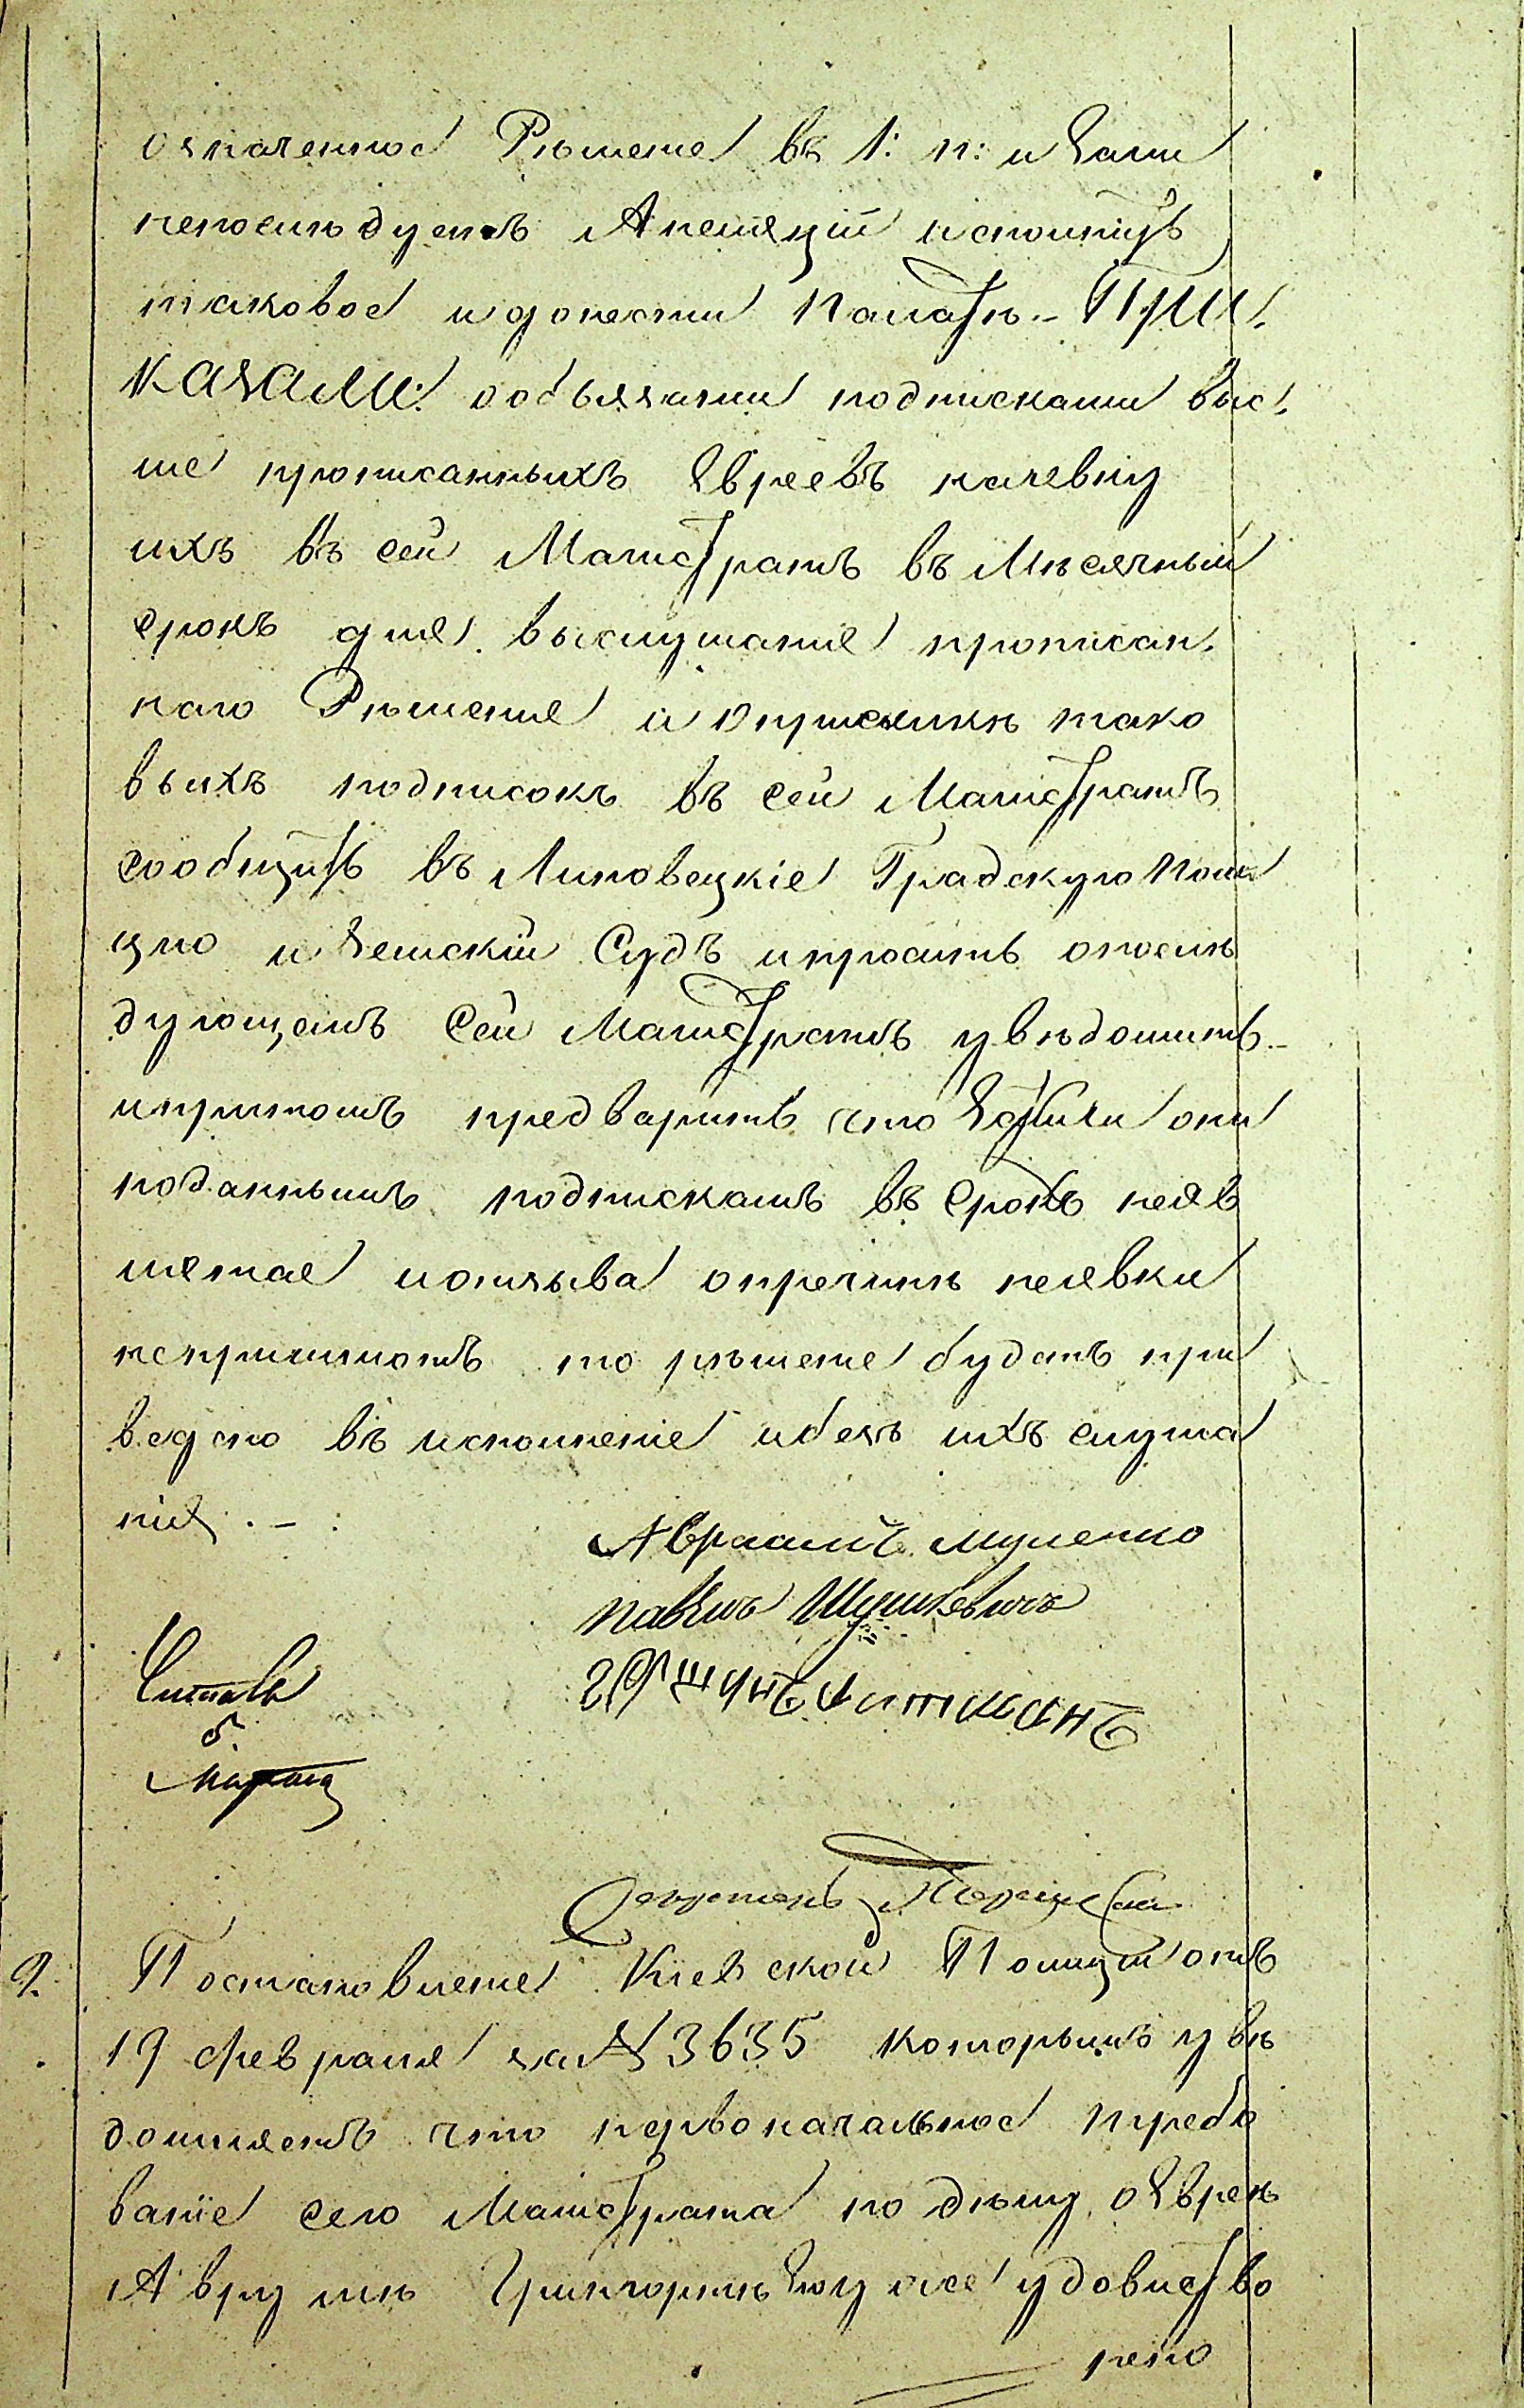 означенное Рѣшеніе въ 1: п: и Еали
непослѣдуетъ Апеляціи исполнить
таковое идонести Палатѣ. - ПРИ-
КАЗАЛИ: ообъязаніи подписками выс-
ше прописанныхъ Евреевъ кочевку
ихъ въ сей Магистратъ въ Мѣсячный
срокъ для выслушанія прописан-
наго Рѣшенія и оприсылкѣ тако
выхъ подписокъ въ сей Магистратъ
сообщить въ Липовецкіе Градскую Поли
цію и Земскій Судъ ипросить опослѣ
дующемъ Сей Магистратъ увѣдомить. -
ипритомъ предварить что Естьли они
поданнымъ подпискамъ въ Срокъ неяв
лятся иотзыва опречинѣ неявки
непришлютъ то рѣшеніе будетъ при
ведено въ исполненіе ибезъ ихъ слуша
нія. - :
Авраамъ Муленко
павелъ Шушкевичъ
Гершунъ Литманъ
Читалъ
б.
Марта
Секретарь
9. Постановленіе Кіевской Полиціи отъ
19 февраля за № 3635 которымъ увѣ
домляетъ что первоначальное требо
ваніе сего Магистрата по дѣлу оЕвреѣ
Аврумѣ уже удовлетво
рено